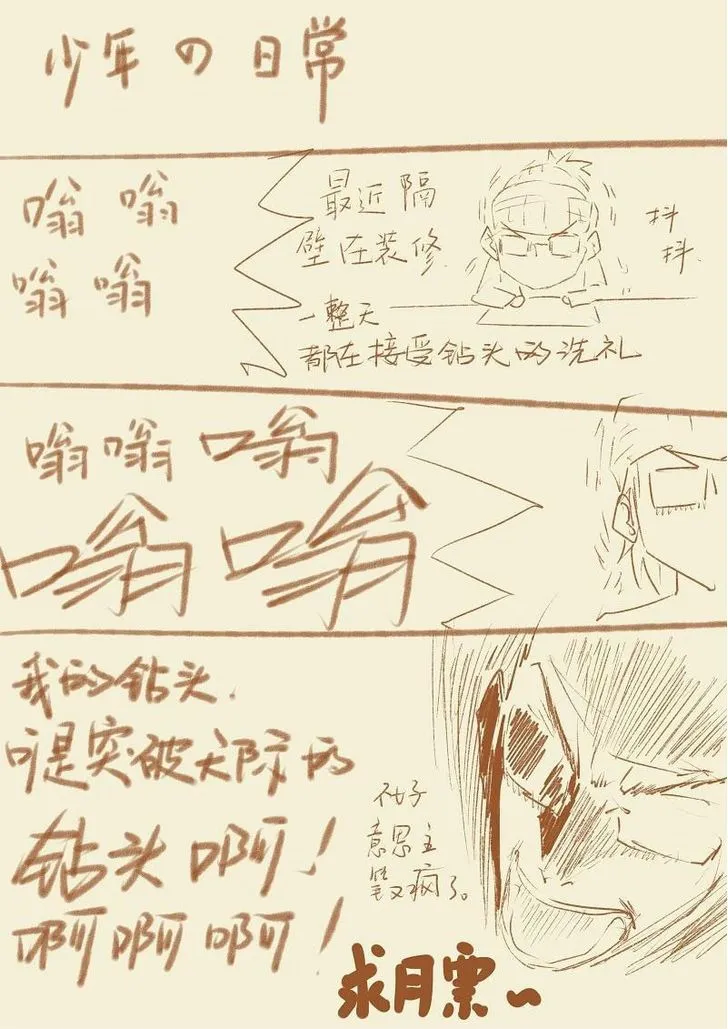 少年の日常
嗡 嗡
嗡 嗡
最近隔
壁在装修
一整天
都在接受钻头的洗礼
抖
抖
嗡嗡嗡
嗡嗡
我的钻头，
可是突破天际的
钻头啊！
啊啊啊！
不好
意思主
笔又疯了。
求月票～